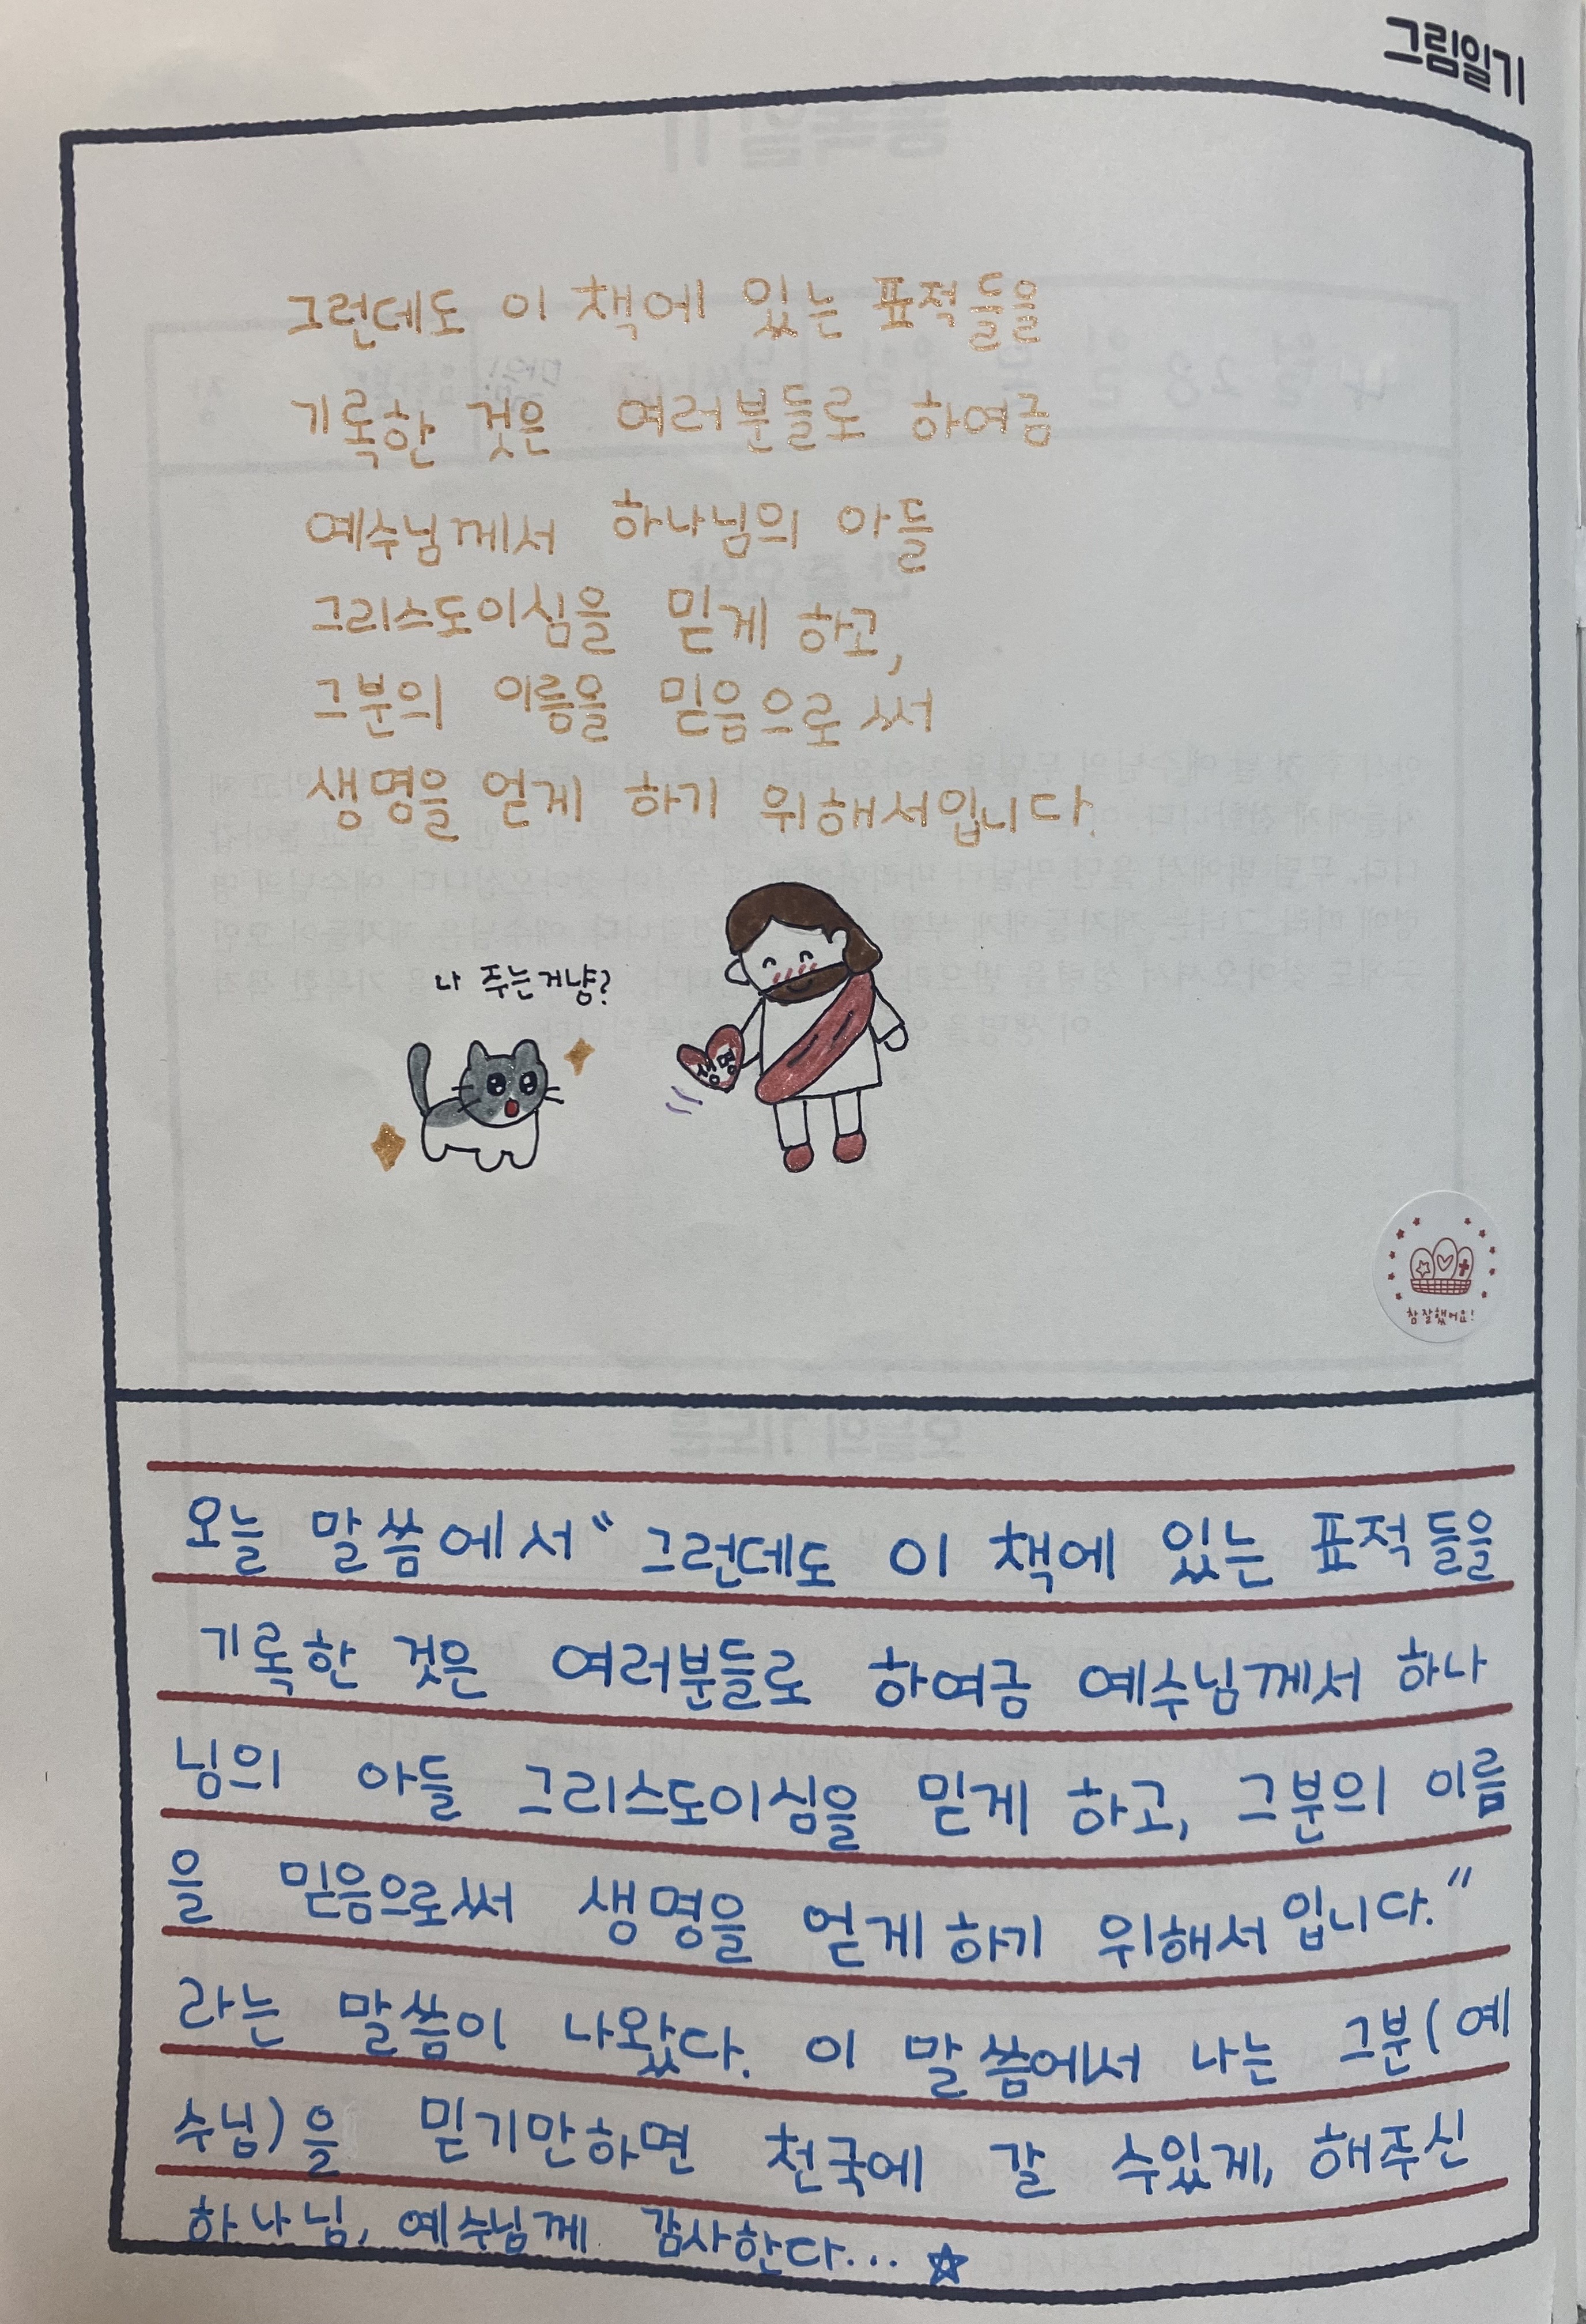 그림일기
그런데도 이 책에 있는 표적들을
기록한 것은 여러분들로 하여금
예수님께서 하나님의 아들
그리스도이심을 믿게 하고,
그분의 이름을 믿음으로써
생명을 얻게 하기 위해서입니다.
나 주는거냥?
생명
참 잘했어요!
오늘 말씀에서 “그런데도 이 책에 있는 표적들을
기록한 것은 여러분들로 하여금 예수님께서 하나
님의 아들 그리스도이심을 믿게 하고, 그분의 이름
을 믿음으로써 생명을 얻게 하기 위해서입니다.”
라는 말씀이 나왔다. 이 말씀에서 나는 그분(예
수님)을 믿기만하면 천국에 갈 수있게, 해주신
하나님, 예수님께 감사한다... ☆